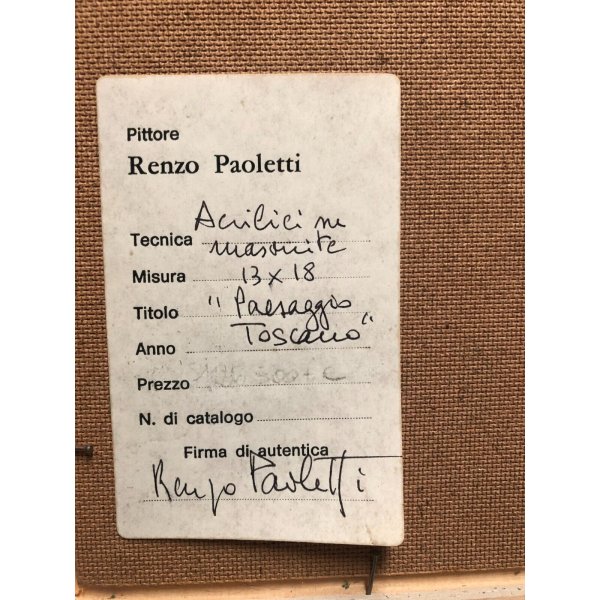 Pittore
Renzo Paoletti
Tecnica Acrilici su
masonite
Misura 13 x 18
Titolo "Paesaggio
Toscano"
Anno
Prezzo
N. di catalogo
Firma di autentica
Renzo Paoletti